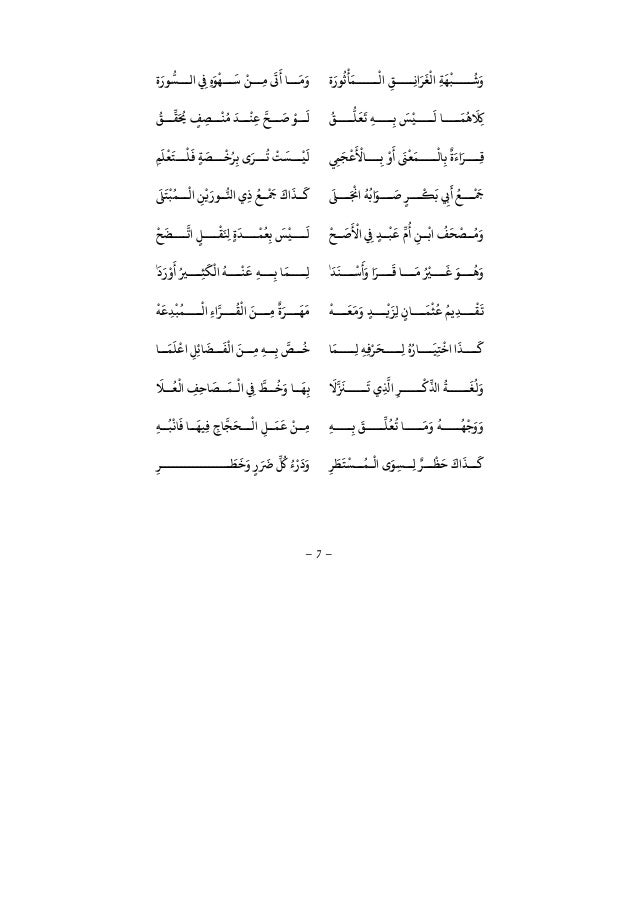 وَشُبْهَةِ الْغَرَانِقِ الْمَأْثُورَة وَمَا أَتَى مِنْ سَهْوَهِ فِي السُّورَة
كِلَاهُمَا لَيْسَ بِهِ تَعَلُّقُ لَوْ صَحَّ عِنْدَ مُنْصِفٍ يُحَقِّقُ
قِرَاءَةٌ بِالْمَعْنَى أَوْ بِالْأَعْجَمِي لَيْسَتْ تُرَى بِرُخْصَةٍ فَلْتَعْلَمِ
جَمْعُ أَبِي بَكْرٍ صَوَابُهُ انْجَلَى كَذَاكَ جَمْعُ ذِي النُّورَيْنِ الْمُبْتَلَى
وَمُصْحَفُ ابْنِ أُمِّ عَبْدٍ فِي الْأَصَحْ لَيْسَ بِعُمْدَةٍ لِنَقْلٍ اتَّضَحْ
وَهُوَ غَيْرُ مَا قَرَا وَأَسْنَدَا لِمَا بِهِ عَنْهُ الْكَثِيرُ أَوْرَدَا
تَقْدِيمُ عُثْمَانٍ لِزَيْدٍ وَمَعَهْ مَهَرَةٌ مِنَ الْقُرَّاءِ الْمُبْدِعَهْ
كَذَا اخْتِيَارُهُ لِحَرْفِهِ لِمَا خُصَّ بِهِ مِنَ الْفَضَائِلِ اعْلَمَا
وَلُغَةُ الذِّكْرِ الَّذِي تَنَزَّلَا بِهَا وَخُطَّ فِي الْمَصَاحِفِ الْعُلَا
وَوَجْهُهُ وَمَا تُعُلِّقَ بِهِ مِنْ عَمَلِ الْحَجَّاجِ فِيهَا فَانْبُهِ
كَذَاكَ حَظْرٌ لِسِوَى الْمُسْتَطَرِ وَدَرْءُ كُلِّ ضَرَرٍ وَخَطَرِ
– 7 –